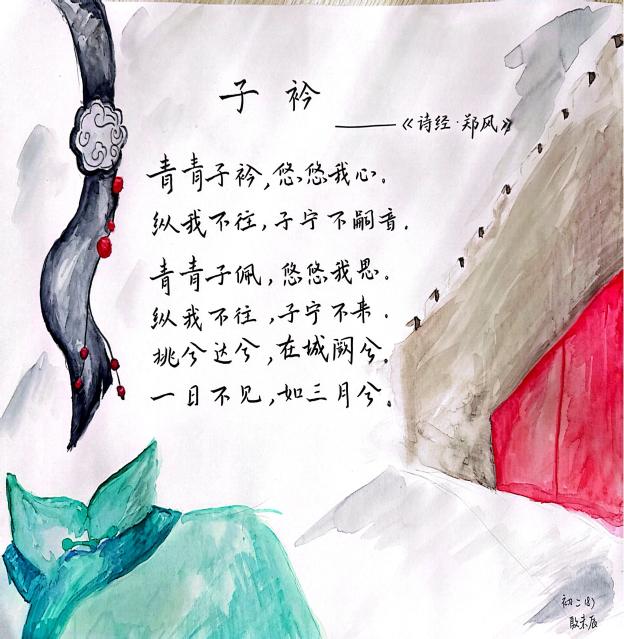 子衿
——《诗经·郑风》
青青子衿,悠悠我心。
纵我不往,子宁不嗣音。
青青子佩,悠悠我思。
纵我不往,子宁不来.
挑兮达兮,在城阙兮。
一日不见,如三月兮。
初二